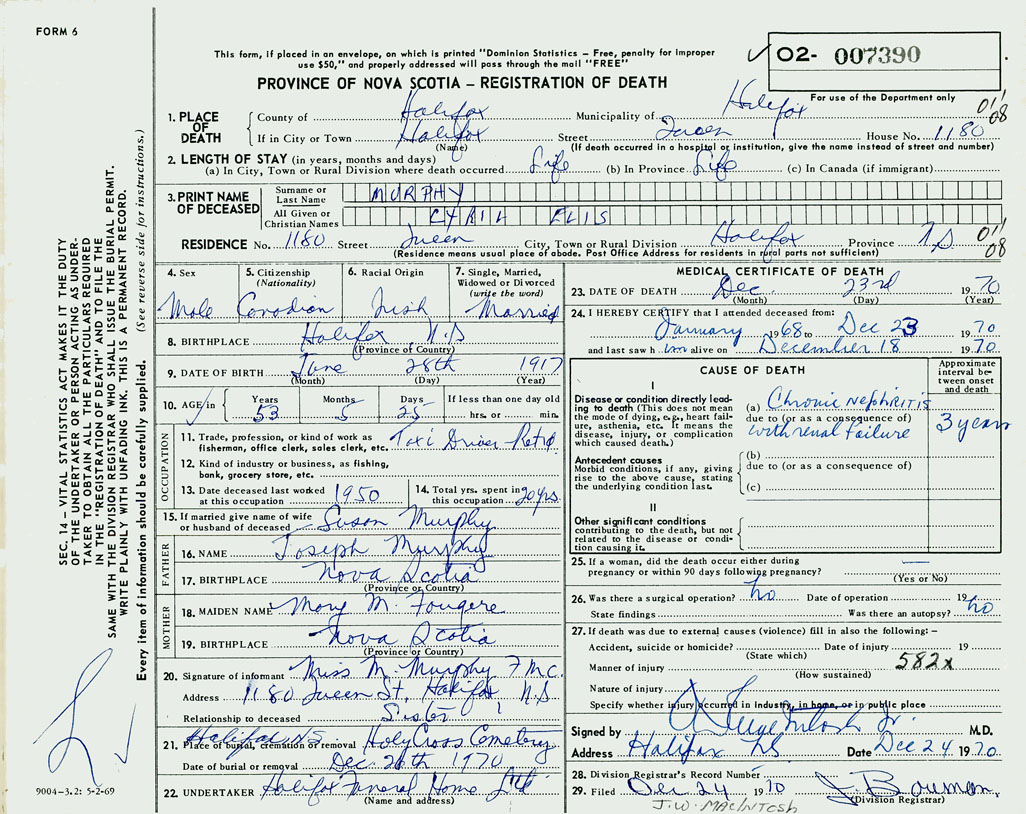 FORM 6
This form, if placed in an envelope, on which is printed "Dominion Statistics – Free, penalty for improper
use $50," and properly addressed will pass through the mail "FREE"
O2- 007390
For use of the Department only
PROVINCE OF NOVA SCOTIA – REGISTRATION OF DEATH
011
08
1. PLACE OF DEATH
County of Halifax Municipality of Halifax
If in City or Town Halifax Street Queen House No. 1180
(Name) (If death occurred in a hospital or institution, give the name instead of street and number)
2. LENGTH OF STAY (in years, months and days)
(a) In City, Town or Rural Division where death occurred Life (b) In Province Life (c) In Canada (if immigrant)
3. PRINT NAME OF DECEASED
Surname or Last Name MURPHY
All Given or Christian Names CYRIL ELIS
RESIDENCE No. 1180 Street Queen City, Town or Rural Division Halifax Province N S
011
08
(Residence means usual place of abode. Post Office Address for residents in rural parts not sufficient)
4. Sex
Male
5. Citizenship
(Nationality)
Canadian
6. Racial Origin
Irish
7. Single, Married,
Widowed or Divorced
(write the word)
Married
8. BIRTHPLACE Halifax N.S
(Province of Country)
9. DATE OF BIRTH June 28th 1917
(Month) (Day) (Year)
10. AGE in Years 53 Months 5 Days 25 If less than one day old
hrs. or min.
OCCUPATION
11. Trade, profession, or kind of work as
fisherman, office clerk, sales clerk, etc. Taxi Driver Retrd
12. Kind of industry or business, as fishing,
bank, grocery store, etc.
13. Date deceased last worked
at this occupation 1950
14. Total yrs. spent in
this occupation 20 yrs
15. If married give name of wife
or husband of deceased Susan Murphy
FATHER
16. NAME Joseph Murphy
17. BIRTHPLACE Nova Scotia
(Province or Country)
MOTHER
18. MAIDEN NAME Mary M. Fougere
19. BIRTHPLACE Nova Scotia
(Province or Country)
20. Signature of informant Miss M. Murphy F.M.C.
Address 1180 Queen St. Halifax N.S
Relationship to deceased Sister
Halifax N.S
21. Place of burial, cremation or removal Holy Cross Cemetery
Date of burial or removal Dec. 26th 1970
22. UNDERTAKER Halifax Funeral Home Ltd
(Name and address)
MEDICAL CERTIFICATE OF DEATH
23. DATE OF DEATH Dec. 23rd 1970
(Month) (Day) (Year)
24. I HEREBY CERTIFY that I attended deceased from:
January 1968 to Dec 23 1970
and last saw h im alive on December 18 1970
CAUSE OF DEATH
Approximate
interval be-
tween onset
and death
I
Disease or condition directly lead-
ing to death (This does not mean
the mode of dying, e.g., heart fail-
ure, asthenia, etc. It means the
disease, injury, or complication
which caused death.)
(a) Chronic nephritis
due to (or as a consequence of)
with renal failure
3 years
Antecedent causes
Morbid conditions, if any, giving
rise to the above cause, stating
the underlying condition last.
(b)
due to (or as a consequence of)
(c)
II
Other significant conditions
contributing to the death, but not
related to the disease or condi-
tion causing it.
25. If a woman, did the death occur either during
pregnancy or within 90 days following pregnancy?
(Yes or No)
26. Was there a surgical operation? no Date of operation 19
State findings Was there an autopsy? no
27. If death was due to external causes (violence) fill in also the following: –
Accident, suicide or homicide? Date of injury 19
(State which)
582x
Manner of injury
(How sustained)
Nature of injury
Specify whether injury occurred in industry, in home, or in public place
Signed by M.D.
Address Halifax NS Date Dec 24 1970
28. Division Registrar's Record Number
29. Filed Dec 24 1970
(Division Registrar)
J.W. MACINTOSH
SEC. 14 – VITAL STATISTICS ACT MAKES IT THE DUTY
OF THE UNDERTAKER OR PERSON ACTING AS UNDER-
TAKER TO OBTAIN ALL THE PARTICULARS REQUIRED
IN THE "REGISTRATION OF DEATH" AND TO FILE THE
SAME WITH THE DIVISION REGISTRAR WHO SHALL ISSUE THE BURIAL PERMIT.
WRITE PLAINLY WITH UNFADING INK. THIS IS A PERMANENT RECORD.
Every item of information should be carefully supplied. (See reverse side for instructions.)
9004–3.2: 5-2-69